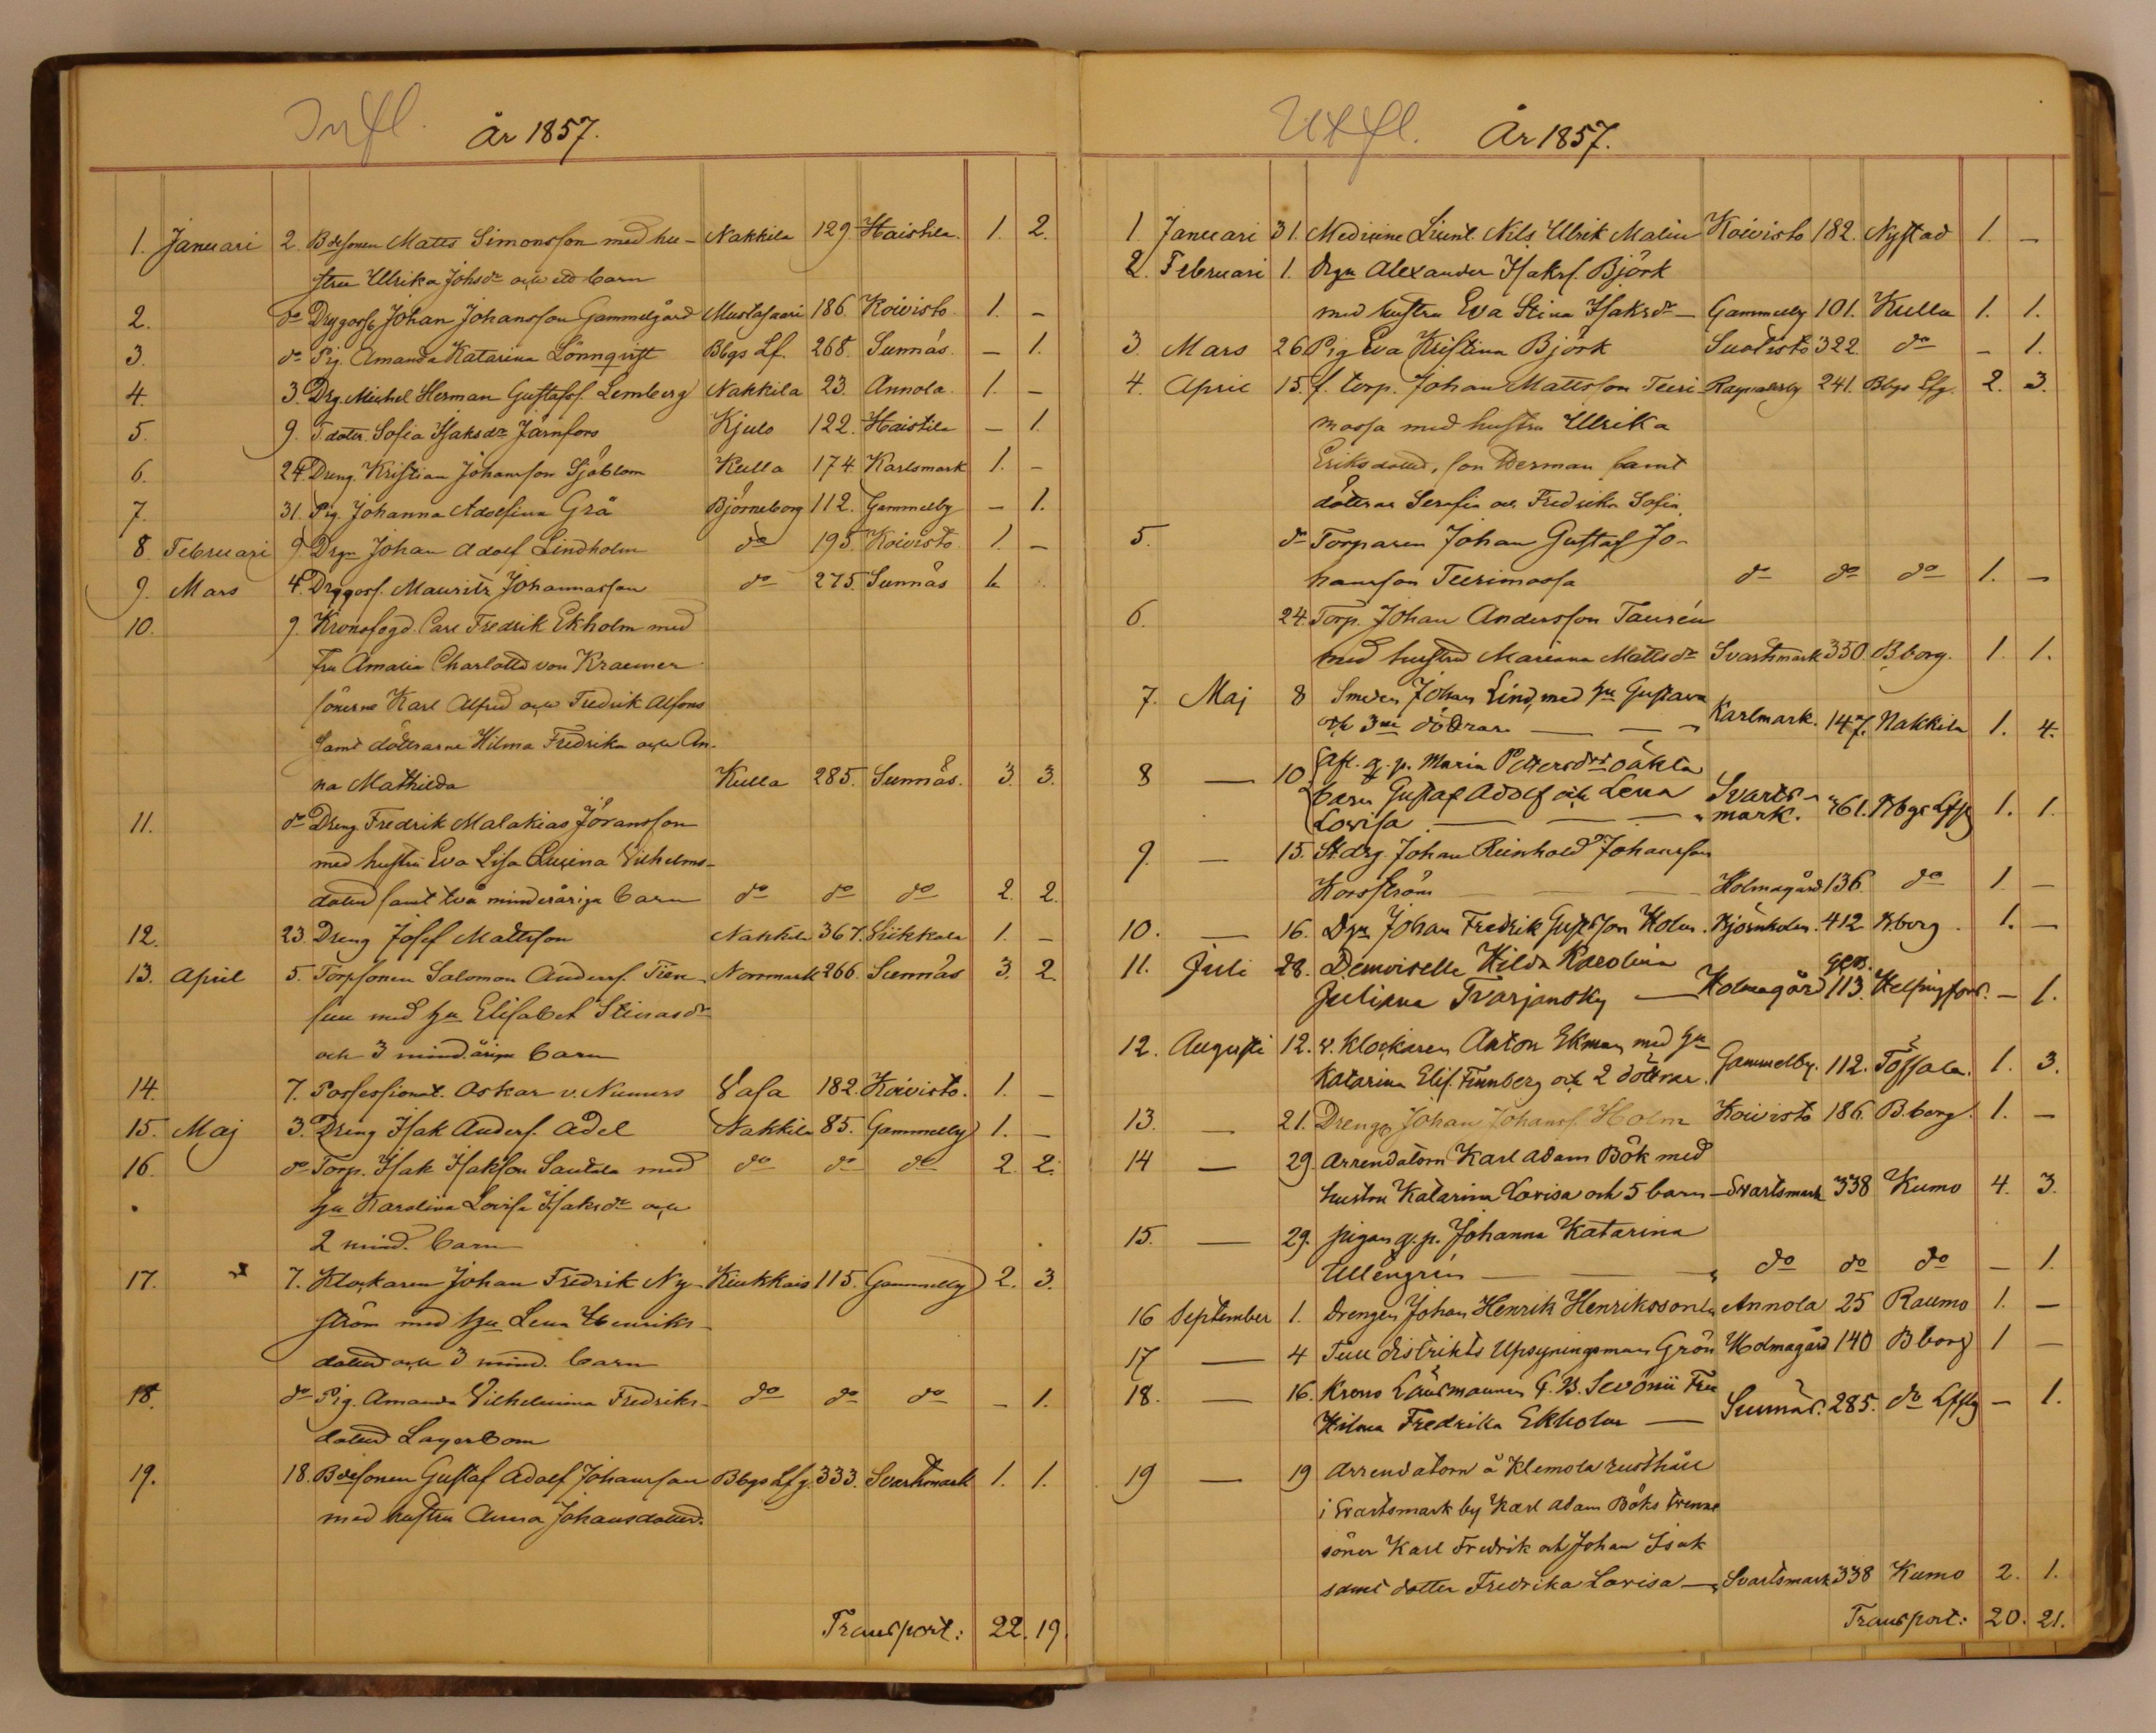 Infl.
År 1857.
1. Januari 2. Bdesonen Matts Simonsson med hu- Nakkila 129. Haistila. 1. 2.
stru Ulrika Johsdr och ett barn
2. do Drggosse Johan Johansson Gammelgård Mustasaari 186. Koivisto. 1. -
3. do Pig. Amanda Katarina Lönnqvist Bbgs Lf. 268. Sunnäs. - 1.
4. 3. Drg. Michel Herman Gustafss. Lemberg Nakkila 23. Annola. 1. -
5. 9. T.dotr. Sofia Isaksdr Järnfors Kjulo 122. Haistila - 1.
6. 24. Dreng. Kristian Johansson Sjöblom Kulla 174. Karlsmark 1. -
7. 31. Pig. Johanna Adolfina Grå Björneborg 112. Gammelby - 1.
8. Februari 9. Drgn Johan Adolf Lindholm do 195. Koivisto 1. -
9. Mars 4. Drggoss. Mauritz Johannasson do 275. Sunnäs 1.
10. 9. Kronofogd. Carl Fredrik Ekholm med
fru Amalia Charlotta von Kraemer
sönerne Karl Alfred och Fredrik Alfons
samt döttrarne Hilma Fredrika och An-
na Mathilda Kulla 285. Sunnäs. 3. 3.
11. do Dreng. Fredrik Malakias Jöransson
med hustru Eva Lisa Lucina Vilhelms-
dotter samt två minderåriga barn do do do 2. 2.
12. 23. Dreng Josef Mattsson Nakkila 367. Lükkala 1. -
13. April 5. Torpsonen Salomon Anderss. Norrmark 266. Sunnäs 3. 2.
med hu Elisabet Stinasdr
och 3 mind.åriga barn
14. 7. Possessionat. Oskar v. Numers Vasa 182. Koivisto. 1. -
15. Maj 3. Dreng Isak Anders. Adel Nakkila 85. Gammelby 1. -
16. do Torp. Isak Isaksson Santala med do do do 2. 2.
hu Karolina Lovisa Isaksdr och
2 mind. barn
17. 7. Klockaren Johan Fredrik Ny- Kiukkais 115. Gammelby 2. 3.
ström med hu Lena Henriks-
dotter och 3 mind. barn
18. do Pig. Amanda Vilhelmina Fredriks- do do do - 1.
dotter Lagerbom
19. 18. Bdesonen Gustaf Adolf Johansson Bbgs Lfg. 333. Svartsmark 1. 1.
med hustru Anna Johansdotter.
Transport: 22. 19.
Utfl.
År 1857.
1. Januari 31. Medicine Licent. Nils Ulrik Malin Koivisto 182. Nystad 1. -
2. Februari 1. Drgn Alexander Isakss. Björk
med hustru Eva Stina Isaksdr - Gammelby 101. Kulla 1. 1.
3. Mars 26 Pig Eva Kristina Björk Suotisto 322. do - 1.
4. April 15. f. torp. Johan Mattsson Teeri- Ragvaldsby 241. Bbgs Lfg. 2. 3.
mossa med hustru Ulrika
Eriksdotter, son Herman samt
döttrar Serafia och Fredrika Sofia.
5. do Torparen Johan Gustaf Jo-
hansson Teerimossa do do do 1. -
6. 24. Torp. Johan Andersson Taurén
med hustru Mariana Mattsdr Svartsmark 350. Bborg. 1. 1.
7. Maj 8 Smeden Johan Lind, med hu Gustava
och 3ne döttrar. Karlmark. 147. Nakkila 1. 4.
8 - 10. Afl. g. p. Maria Pettersdrs oäkta
barn Gustaf Adolf och Lena Svarts-
Lovisa mark. 361. Bbgs Lffg 1. 1.
9. - 15. St.drg. Johan Reinhold Johansson
Korsström Holmagård 136. do 1. -
10. - 16. Drn Johan Fredrik Gustsson Holm. Björnholm. 412 Bborg. 1. -
11. Juli 28. Demoiselle Hilda Karolina
Juliana Tvarjansky - Holmagård 113. Helsingfors. - 1.
12. Augusti 12. v. Klockaren Anton Ekman med hu
Katarina Elis. Finnberg och 2 döttrar. Gammelby. 112. Töfsala. 1. 3.
13. - 21. Drengn Johan Johanss. Holm Koivisto 186. B.borg. 1. -
14 - 29. Arrendatorn Karl Adam Bök med
hustru Katarina Lovisa och 5 barn - Svartsmark 338 Kumo 4. 3.
15. - 29. pigan q.p. Johanna Katarina
Ullengrén do do do - 1.
16 September 1. Drengen Johan Henrik Henriksson Annola 25 Raumo 1. -
17 - 4 Tull distrikts Upsyningsman Grön Holmagård 140 Bborg 1 -
18. - 16. Krono Länsmannen G. B. Sevonii Fru
Hilma Fredrika Ekholm - Sunnäs. 285. do Lffg - 1.
19 - 19 Arrendatorn å Klemola rusthåll
i Svartsmark by Karl Adam Böks trenne
söner Karl Fredrik och Johan Isak
samt dotter Fredrika Lovisa - Svartsmark 338 Kumo 2. 1.
Transport: 20. 21.